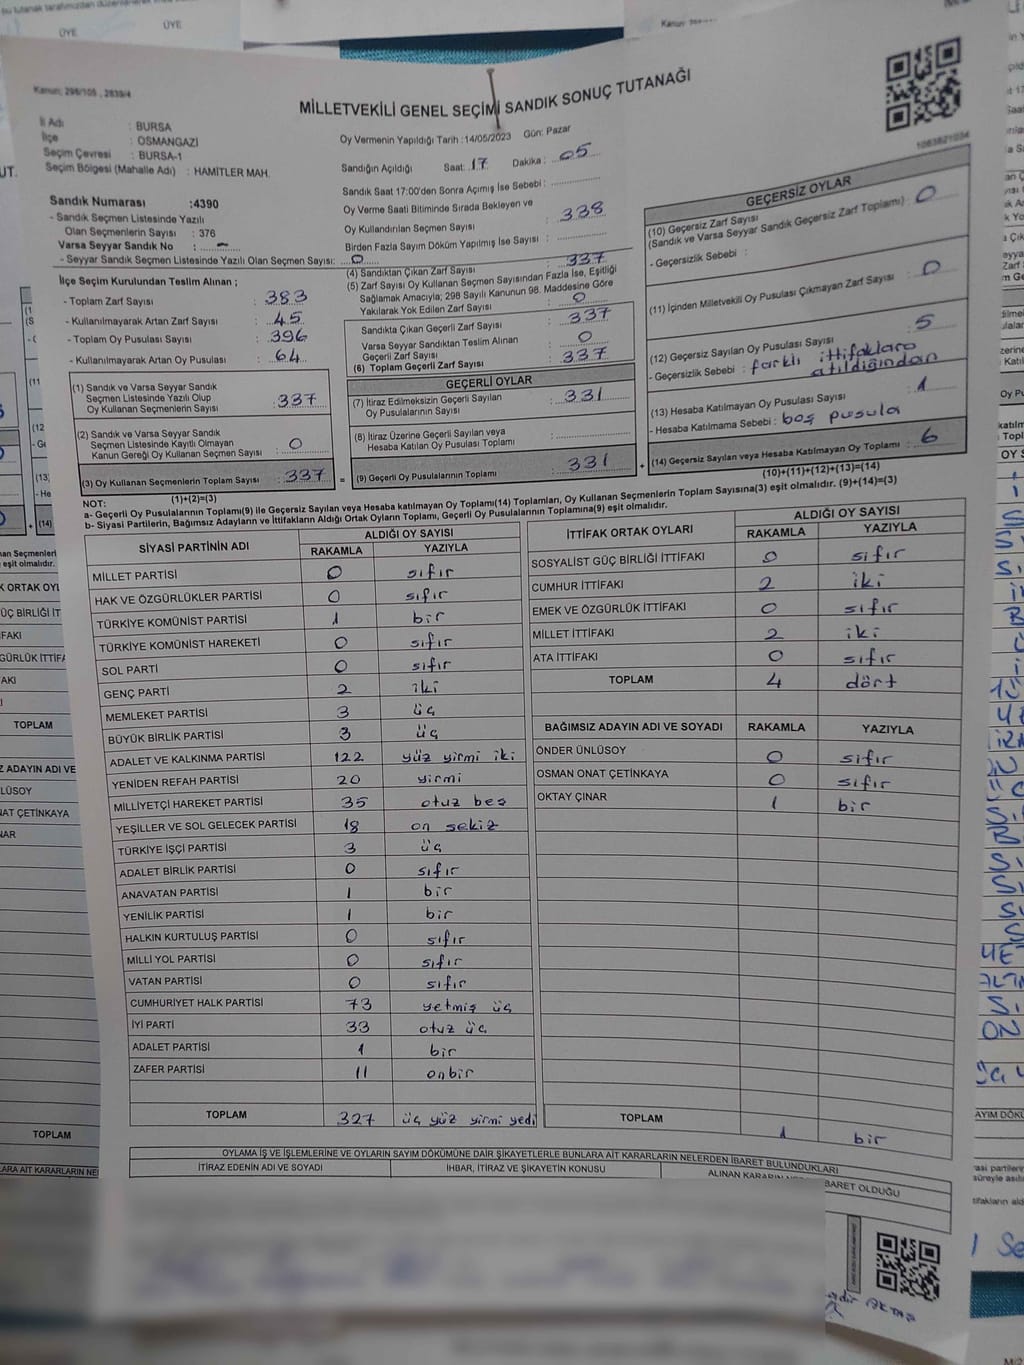 Kanun; 298/105 , 2839/4
MİLLETVEKİLİ GENEL SEÇİMİ SANDIK SONUÇ TUTANAĞI
1083821034
İl Adı : BURSA
İlçe : OSMANGAZİ
Seçim Çevresi : BURSA-1
Seçim Bölgesi (Mahalle Adı) : HAMİTLER MAH.
Sandık Numarası :4390
- Sandık Seçmen Listesinde Yazılı
Olan Seçmenlerin Sayısı : 376
Varsa Seyyar Sandık No : -
- Seyyar Sandık Seçmen Listesinde Yazılı Olan Seçmen Sayısı: 0
Oy Vermenin Yapıldığı Tarih :14/05/2023 Gün: Pazar
Sandığın Açıldığı Saat: 17 Dakika : 05
Sandık Saat 17:00'den Sonra Açımış İse Sebebi :
Oy Verme Saati Bitiminde Sırada Bekleyen ve
Oy Kullandırılan Seçmen Sayısı : 338
Birden Fazla Sayım Döküm Yapılmış İse Sayısı :
İlçe Seçim Kurulundan Teslim Alınan ;
- Toplam Zarf Sayısı : 383
- Kullanılmayarak Artan Zarf Sayısı : 45
- Toplam Oy Pusulası Sayısı : 396
- Kullanılmayarak Artan Oy Pusulası : 64
(1) Sandık ve Varsa Seyyar Sandık
Seçmen Listesinde Yazılı Olup
Oy Kullanan Seçmenlerin Sayısı : 337
(2) Sandık ve Varsa Seyyar Sandık
Seçmen Listesinde Kayıtlı Olmayan
Kanun Gereği Oy Kullanan Seçmen Sayısı : 0
(3) Oy Kullanan Seçmenlerin Toplam Sayısı : 337
(1)+(2)=(3)
(4) Sandıktan Çıkan Zarf Sayısı : 337
(5) Zarf Sayısı Oy Kullanan Seçmen Sayısından Fazla İse, Eşitliği
Sağlamak Amacıyla; 298 Sayılı Kanunun 98. Maddesine Göre
Yakılarak Yok Edilen Zarf Sayısı : 0
Sandıkta Çıkan Geçerli Zarf Sayısı : 337
Varsa Seyyar Sandıktan Teslim Alınan
Geçerli Zarf Sayısı : 0
(6) Toplam Geçerli Zarf Sayısı : 337
GEÇERLİ OYLAR
(7) İtiraz Edilmeksizin Geçerli Sayılan
Oy Pusulalarının Sayısı : 331
(8) İtiraz Üzerine Geçerli Sayılan veya
Hesaba Katılan Oy Pusulası Toplamı :
= (9) Geçerli Oy Pusulalarının Toplamı : 331 +
GEÇERSİZ OYLAR
(10) Geçersiz Zarf Sayısı
(Sandık ve Varsa Seyyar Sandık Geçersiz Zarf Toplamı) : 0
- Geçersizlik Sebebi :
(11) İçinden Milletvekili Oy Pusulası Çıkmayan Zarf Sayısı : 0
(12) Geçersiz Sayılan Oy Pusulası Sayısı : 5
- Geçersizlik Sebebi : farklı ittifaklara
atıldığından
(13) Hesaba Katılmayan Oy Pusulası Sayısı : 1
- Hesaba Katılmama Sebebi : boş pusula
(14) Geçersiz Sayılan veya Hesaba Katılmayan Oy Toplamı : 6
(10)+(11)+(12)+(13)=(14)
NOT:
a- Geçerli Oy Pusulalarının Toplamı(9) ile Geçersiz Sayılan veya Hesaba katılmayan Oy Toplamı(14) Toplamları, Oy Kullanan Seçmenlerin Toplam Sayısına(3) eşit olmalıdır. (9)+(14)=(3)
b- Siyasi Partilerin, Bağımsız Adayların ve İttifakların Aldığı Ortak Oyların Toplamı, Geçerli Oy Pusulalarının Toplamına(9) eşit olmalıdır.
SİYASİ PARTİNİN ADI ALDIĞI OY SAYISI
RAKAMLA YAZIYLA
MİLLET PARTİSİ 0 sıfır
HAK VE ÖZGÜRLÜKLER PARTİSİ 0 sıfır
TÜRKİYE KOMÜNİST PARTİSİ 1 bir
TÜRKİYE KOMÜNİST HAREKETİ 0 sıfır
SOL PARTİ 0 sıfır
GENÇ PARTİ 2 iki
MEMLEKET PARTİSİ 3 üç
BÜYÜK BİRLİK PARTİSİ 3 üç
ADALET VE KALKINMA PARTİSİ 122 yüz yirmi iki
YENİDEN REFAH PARTİSİ 20 yirmi
MİLLİYETÇİ HAREKET PARTİSİ 35 otuz beş
YEŞİLLER VE SOL GELECEK PARTİSİ 18 on sekiz
TÜRKİYE İŞÇİ PARTİSİ 3 üç
ADALET BİRLİK PARTİSİ 0 sıfır
ANAVATAN PARTİSİ 1 bir
YENİLİK PARTİSİ 1 bir
HALKIN KURTULUŞ PARTİSİ 0 sıfır
MİLLİ YOL PARTİSİ 0 sıfır
VATAN PARTİSİ 0 sıfır
CUMHURİYET HALK PARTİSİ 73 yetmiş üç
İYİ PARTİ 33 otuz üç
ADALET PARTİSİ 1 bir
ZAFER PARTİSİ 11 onbir
TOPLAM 327 üç yüz yirmi yedi
İTTİFAK ORTAK OYLARI ALDIĞI OY SAYISI
RAKAMLA YAZIYLA
SOSYALİST GÜÇ BİRLİĞİ İTTİFAKI 0 sıfır
CUMHUR İTTİFAKI 2 iki
EMEK VE ÖZGÜRLÜK İTTİFAKI 0 sıfır
MİLLET İTTİFAKI 2 iki
ATA İTTİFAKI 0 sıfır
TOPLAM 4 dört
BAĞIMSIZ ADAYIN ADI VE SOYADI RAKAMLA YAZIYLA
ÖNDER ÜNLÜSOY 0 sıfır
OSMAN ONAT ÇETİNKAYA 0 sıfır
OKTAY ÇINAR 1 bir
TOPLAM 1 bir
OYLAMA İŞ VE İŞLEMLERİNE VE OYLARIN SAYIM DÖKÜMÜNE DAİR ŞİKAYETLERLE BUNLARA AİT KARARLARIN NELERDEN İBARET BULUNDUKLARI
İTİRAZ EDENİN ADI VE SOYADI İHBAR, İTİRAZ VE ŞİKAYETİN KONUSU ALINAN KARARIN NEDEN İBARET OLDUĞU